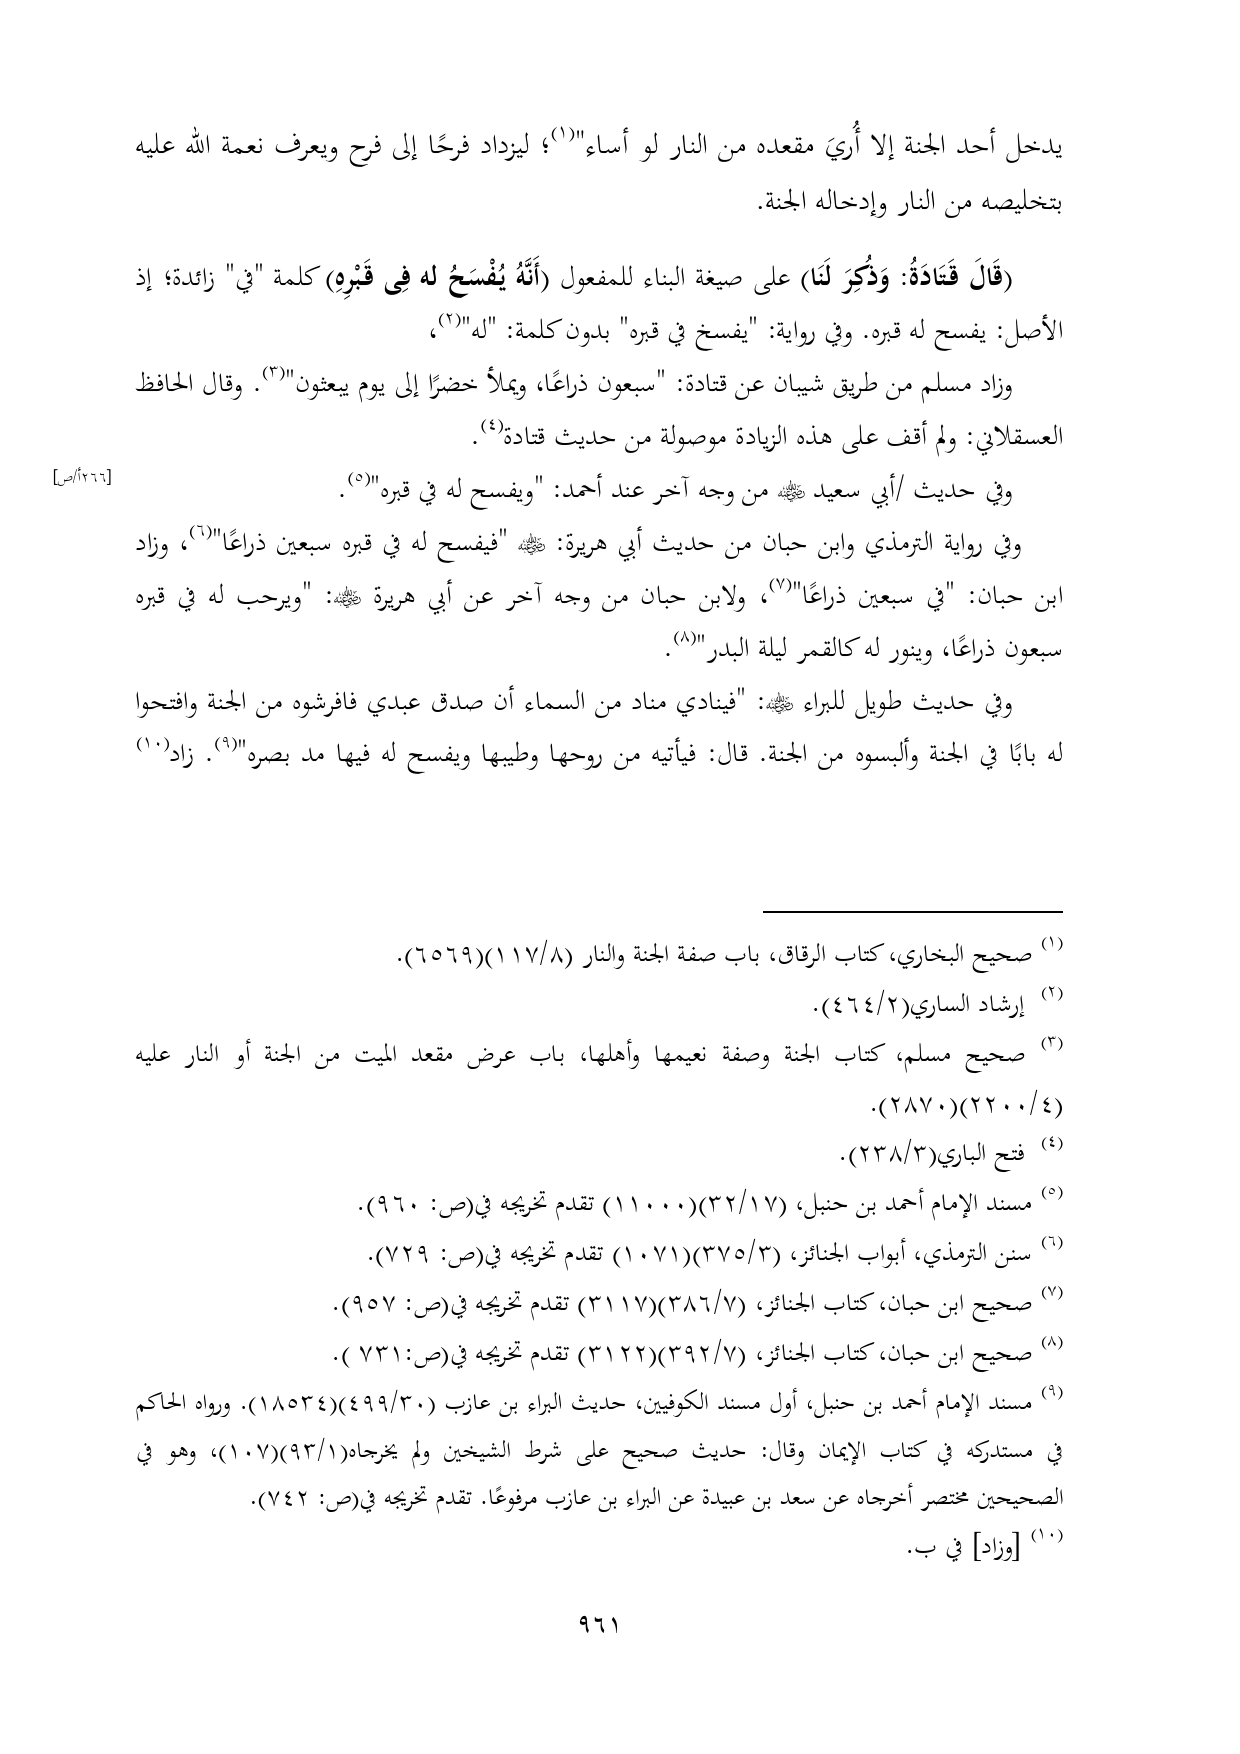 يدخل أحد الجنة إلا أُريَ مقعده من النار لو أساء"(١)؛ ليزداد فرحًا إلى فرح ويعرف نعمة الله عليه
بتخليصه من النار وإدخاله الجنة.
(قَالَ قَتَادَةُ: وَذُكِرَ لَنَا) على صيغة البناء للمفعول (أَنَّهُ يُفْسَحُ له فِى قَبْرِهِ) كلمة "في" زائدة؛ إذ
الأصل: يفسح له قبره. وفي رواية: "يفسخ في قبره" بدون كلمة: "له"(٢)،
وزاد مسلم من طريق شيبان عن قتادة: "سبعون ذراعًا، ويملأ خضرًا إلى يوم يبعثون"(٣). وقال الحافظ
العسقلاني: ولم أقف على هذه الزيادة موصولة من حديث قتادة(٤).
وفي حديث /أبي سعيد ﵁ من وجه آخر عند أحمد: "ويفسح له في قبره"(٥).
[٢٦٦أ/ص]
وفي رواية الترمذي وابن حبان من حديث أبي هريرة: ﵁ "فيفسح له في قبره سبعين ذراعًا"(٦)، وزاد
ابن حبان: "في سبعين ذراعًا"(٧)، ولابن حبان من وجه آخر عن أبي هريرة ﵁: "ويرحب له في قبره
سبعون ذراعًا، وينور له كالقمر ليلة البدر"(٨).
وفي حديث طويل للبراء ﵁: "فينادي مناد من السماء أن صدق عبدي فافرشوه من الجنة وافتحوا
له بابًا في الجنة وألبسوه من الجنة. قال: فيأتيه من روحها وطيبها ويفسح له فيها مد بصره"(٩). زاد(١٠)
(١) صحيح البخاري، كتاب الرقاق، باب صفة الجنة والنار (١١٧/٨)(٦٥٦٩).
(٢) إرشاد الساري(٤٦٤/٢).
(٣) صحيح مسلم، كتاب الجنة وصفة نعيمها وأهلها، باب عرض مقعد الميت من الجنة أو النار عليه
(٢٢٠٠/٤)(٢٨٧٠).
(٤) فتح الباري(٢٣٨/٣).
(٥) مسند الإمام أحمد بن حنبل، (٣٢/١٧)(١١٠٠٠) تقدم تخريجه في(ص: ٩٦٠).
(٦) سنن الترمذي، أبواب الجنائز، (٣٧٥/٣)(١٠٧١) تقدم تخريجه في(ص: ٧٢٩).
(٧) صحيح ابن حبان، كتاب الجنائز، (٣٨٦/٧)(٣١١٧) تقدم تخريجه في(ص: ٩٥٧).
(٨) صحيح ابن حبان، كتاب الجنائز، (٣٩٢/٧)(٣١٢٢) تقدم تخريجه في(ص:٧٣١ ).
(٩) مسند الإمام أحمد بن حنبل، أول مسند الكوفيين، حديث البراء بن عازب (٤٩٩/٣٠)(١٨٥٣٤). ورواه الحاكم
في مستدركه في كتاب الإيمان وقال: حديث صحيح على شرط الشيخين ولم يخرجاه(٩٣/١)(١٠٧)، وهو في
الصحيحين مختصر أخرجاه عن سعد بن عبيدة عن البراء بن عازب مرفوعًا. تقدم تخريجه في(ص: ٧٤٢).
(١٠) [وزاد] في ب.
٩٦١